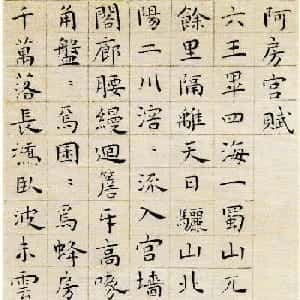 阿房宮賦
六王畢四海一蜀山兀
餘里隔離天日驪山北
陽二川溶〻流入宮墻
閣廊腰縵迴簷牙高啄
角盤〻焉囷〻焉蜂房
千萬落長橋臥波未雲